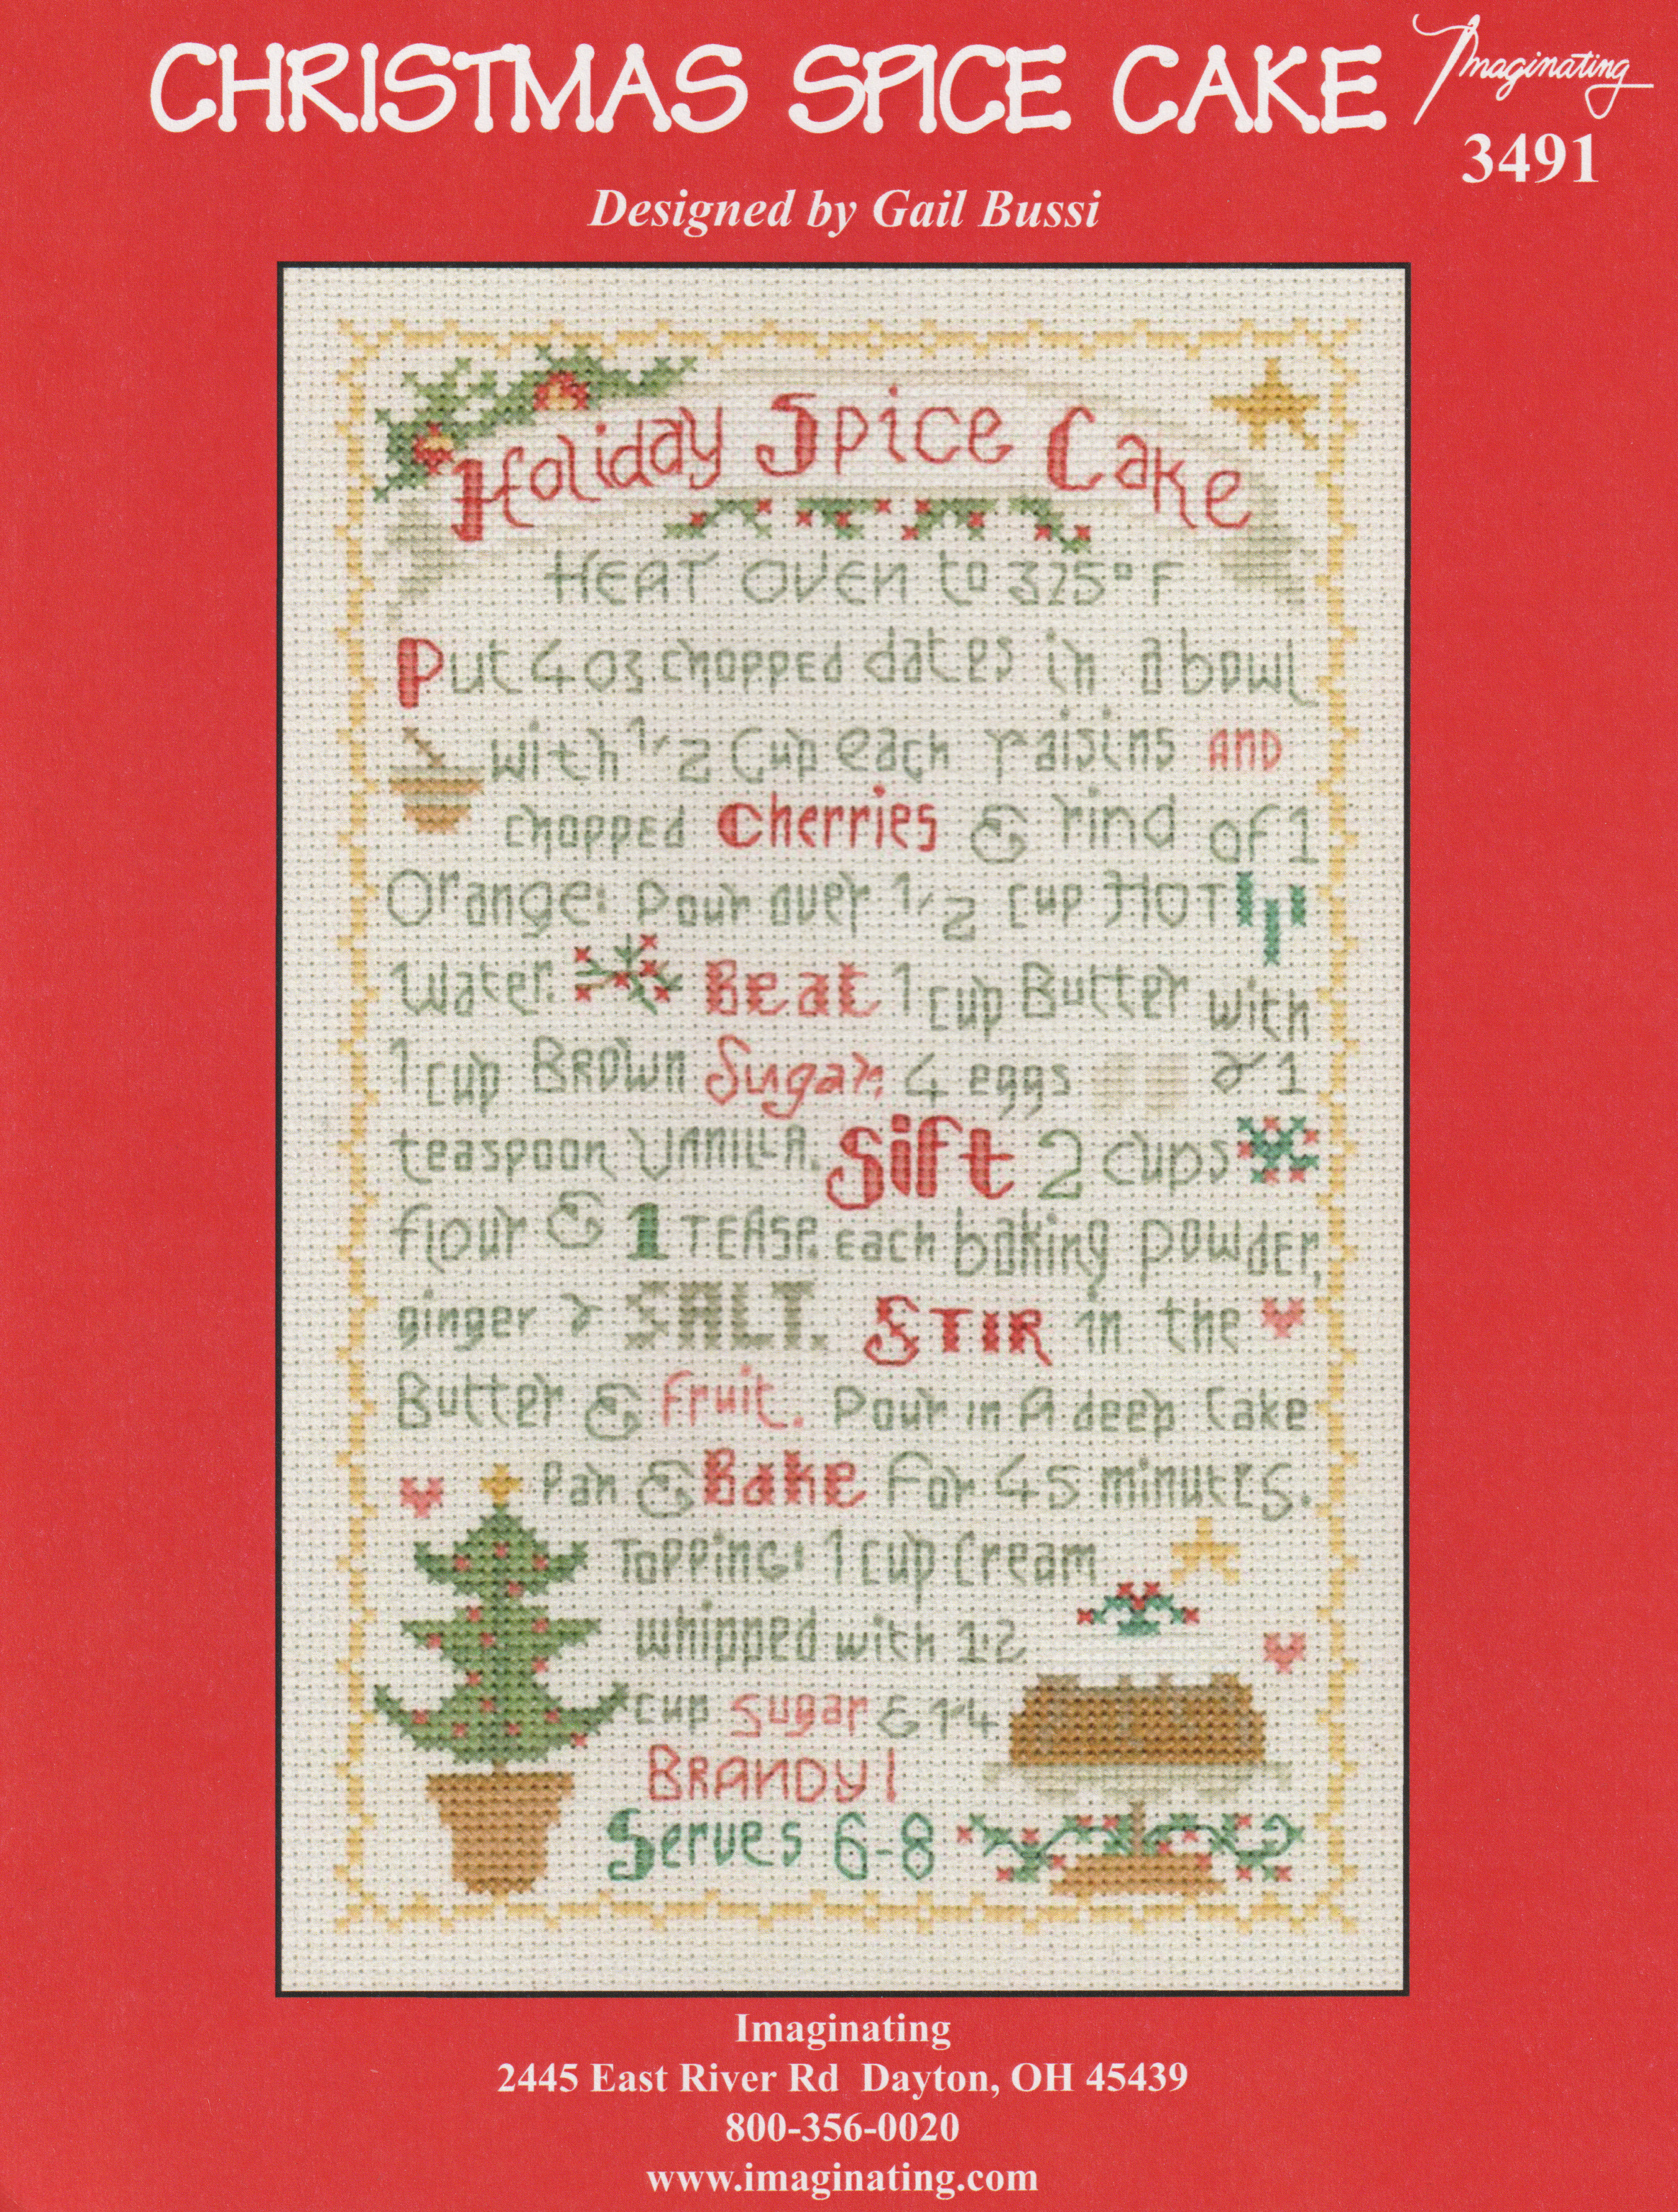 CHRISTMAS SPICE CAKE
Imaginating
3491
Designed by Gail Bussi
Holiday Spice Cake
HEAT OVEN to 325° F
Put 4 oz chopped dates in a bowl
with 1/2 Cup each raisins AND
chopped Cherries & rind of 1
Orange: Pour over 1/2 cup HOT
Water. Beat 1 cup Butter with
1 cup BROWN Sugar, 4 eggs & 1
teaspoon VANILLA. Sift 2 cups
flour & 1 TEASP. each baking powder,
ginger & SALT. STIR in the
Butter & Fruit. Pour in A deep Cake
Pan & Bake For 45 minutes.
TOPPING: 1 cup Cream
whipped with 1/2
cup sugar & 1/4
BRANDY!
Serves 6-8
Imaginating
2445 East River Rd Dayton, OH 45439
800-356-0020
www.imaginating.com